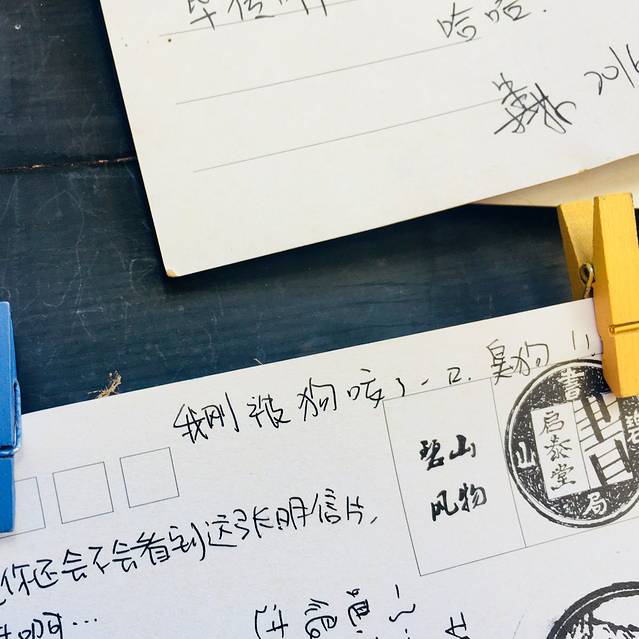 哈哈.
2016
我刚被狗咬了一口.臭狗!!
碧山
风物
碧山書局
启泰堂
你还会不会看到这张明信片,
啊…